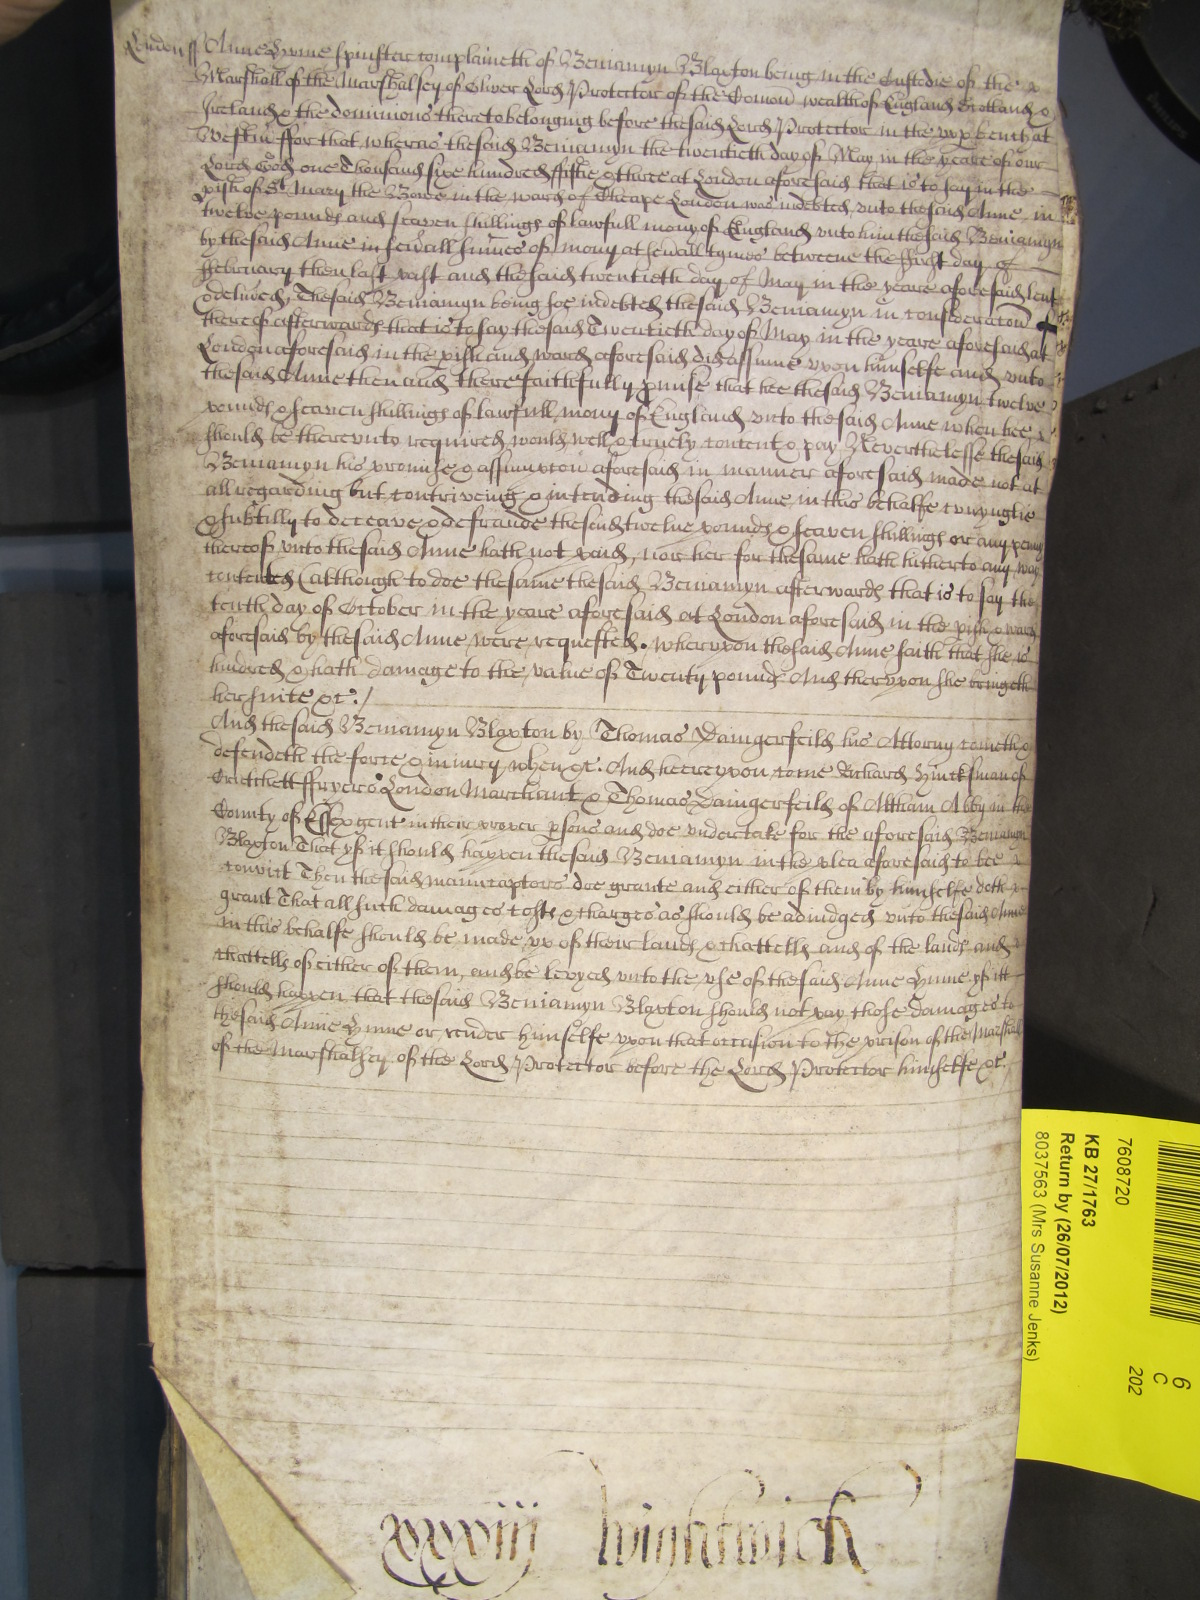 London ss Anne Gynne spinster complaineth of Beniamyn Blaxton being in the Custodie of the
Marshall of the Marshalsey of Oliver Lord Protector of the Comon wealth of England Scotland &
Ireland & the dominions thereto belonging before the said Lord Protector in the upp bench at
Westm̄ ffor that, wheras the said Beniamyn the twentieth day of May in the yeare of our
Lord God one Thousand sixe hundred ffiftie & three at London aforesaid that is to say in the
pish of St Mary the Bowe in the ward of Cheape London was indebted unto the said Anne in
twelve pounds and seaven shillings of lawfull mony of England unto him the said Beniamyn
by the said Anne in sevall sumes of mony at sevall tymes betweene the ffirst day of
ffebruary then last past and the said twentieth day of May in the yeare aforesaid lent
& delived, The said Beniamyn being soe indebted the said Beniamyn in consideracon
thereof afterwards that is to say the said Twentieth day of May in the yeare aforesaid at
London aforesaid in the pish and ward aforesaid did assume upon himselfe and unto
the said Anne then and there faithfully pmise that hee the said Beniamyn twelve
pounds & seaven shillings of lawfull mony of England unto the said Anne when hee
should be thereunto required would well & truely content & pay Neverthelesse the said
Beniamyn his promise & assumpcon aforesaid in manner aforesaid made not at
all regarding but contriveing & intending the said Anne in this behalfe cunynglie
& subtilly to deceave & defraude the said twelve pounds & seaven shillings or any peny
thereof unto the said Anne hath not paid, nor her for the same hath hitherto any way
contented (although to doe the same the said Beniamyn afterwards that is to say the
tenth day of October in the yeare aforesaid at London aforesaid in the pish & ward
aforesaid by the said Anne were requested. wherupon the said Anne saith that she is
hindred & hath damage to the value of Twenty pounds And therupon she bringeth
her suite &c./
And the said Beniamyn Blaxton by Thomas Daingerfeild his Attorny cometh &
defendeth the force & iniury when &c. And hereupon come Richard Hincksman of
Crutchett ffryers London Marchant & Thomas Daingerfeild of Altham Abby in the
County of Essex gent in their proper psons and doe undertake for the aforesaid Beniamyn
Blaxton That yf it should happen the said Beniamyn in the plea aforesaid to bee
convict Then the said mainucaptors doe grante and either of them by himselfe doth
grant That all such damages costs & charges as should be adiudged unto the said Anne
in this behalfe should be made up of their lands & chattells and of the lands and
chattells of either of them, and be levyed unto the use of the said Anne Gynne yf itt
should happen that the said Beniamyn Blaxton should not pay those damages to
the said Anne Gynne or render himselfe upon that occasion to the prison of the Marshall
of the Marshalsey of the Lord Protector before the Lord Protector himselfe &c.
xxxviij Wightwick
7608720
KB 27/1763
Return by (26/07/2012)
8037563 (Mrs Susanne Jenks)
6
C
202
PHILIPS